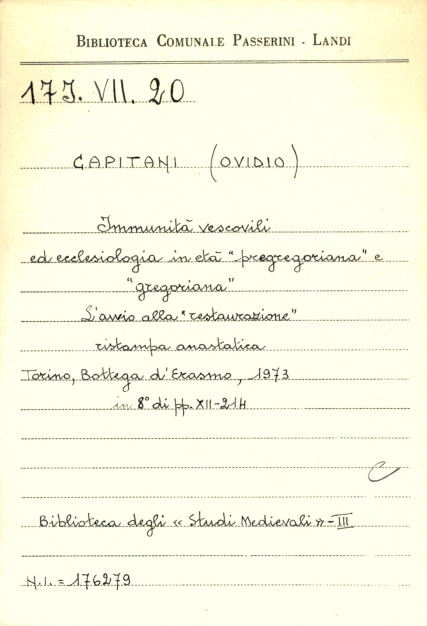 BIBLIOTECA COMUNALE PASSERINI - LANDI
17J. VII. 20
CAPITANI (OVIDIO)
Immunità vescovili
ed ecclesiologia in età "pregregoriana" e
"gregoriana"
L'avvio alla "restaurazione"
ristampa anastatica
Torino, Bottega d'Erasmo, 1973
in 8° di pp. XII-214
C
Biblioteca degli « Studi Medievali » - III
N.I. = 176279